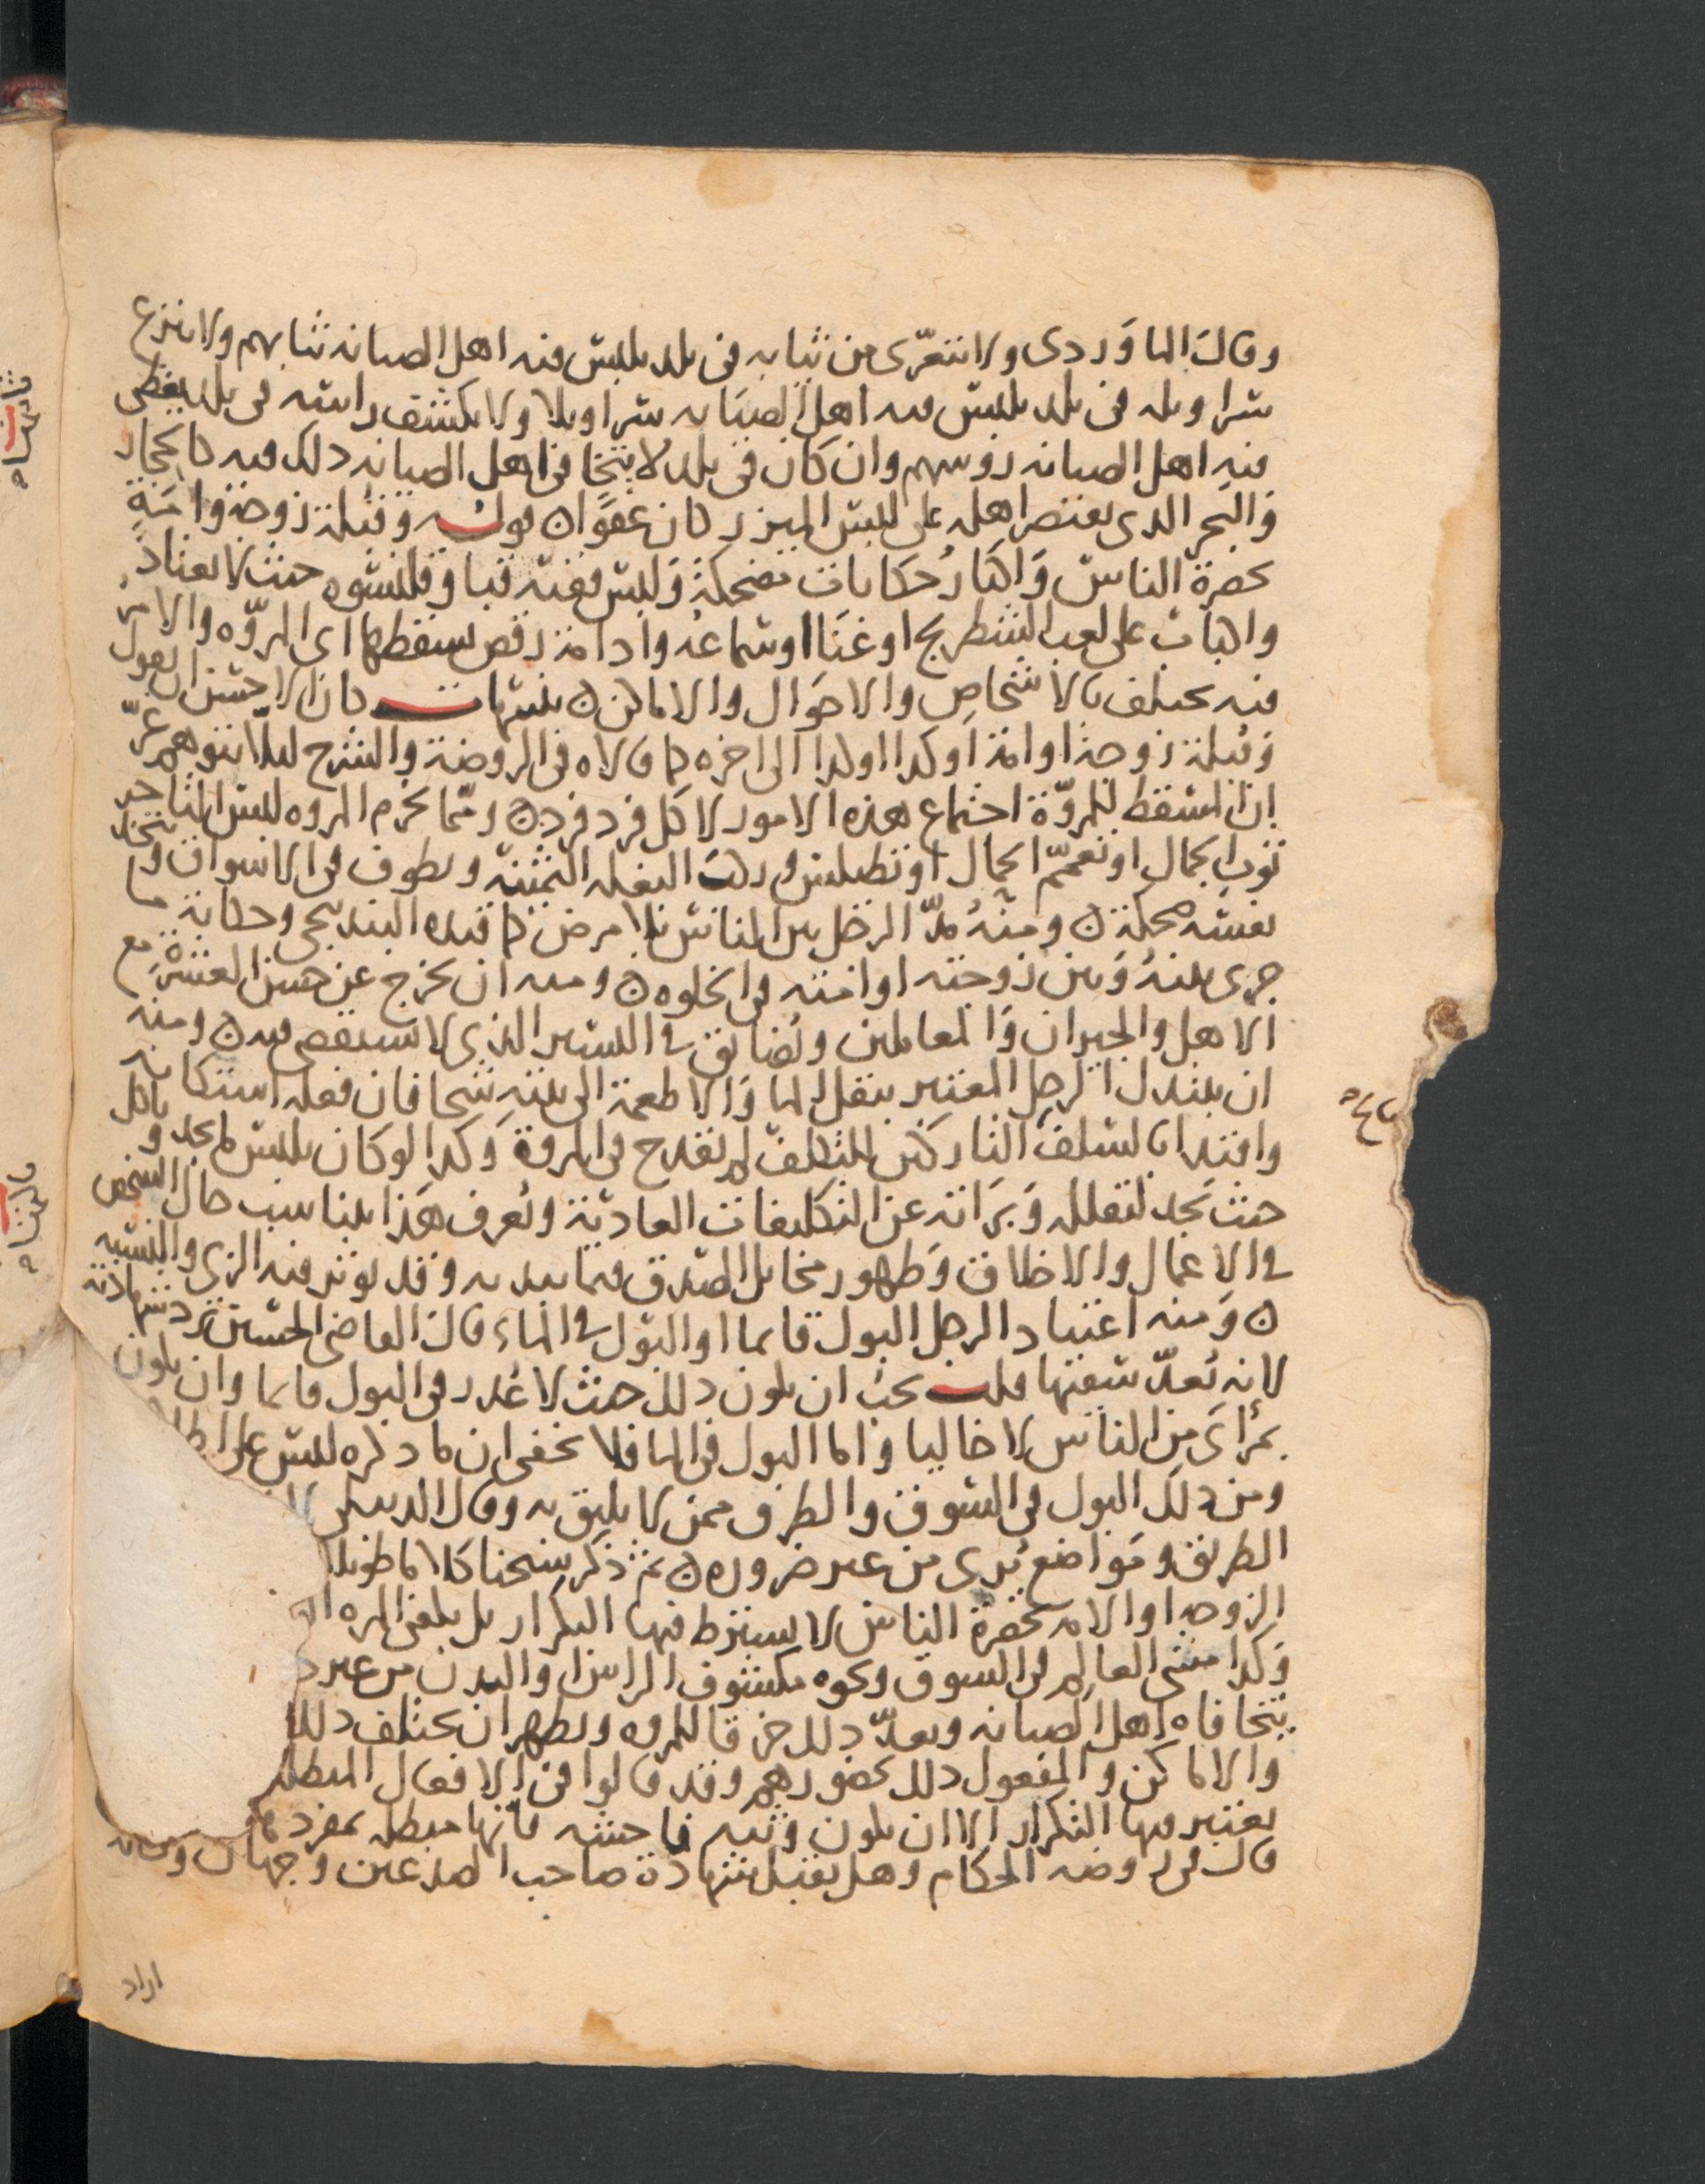 وقال الماوردى ولا يتعرّى من ثيابه فى بلد يلبس فيه اهل الصيانه ثيابهم ولا ينزع
سراويله فى بلد يلبس فيه اهل الصيانه سراويلا ولا يكشف راسه فى بلد يغطى
فيه اهل الصيانه روسهم وان كان فى بلد لا يتجافى اهل الصيانه ذلك فيه كالحجاز
والبحر الذى يقتصر اهله على لبس الميزر كان عفوًا ه قوله وقبلة زوجة وامةٍ
بحضرة الناس واكثار حكايات مضحكة ولبس فقيه قبا وقلنسوه حيث لا يعتاد
واكباب على لعب الشطرنج او غنا او سماعه وادامة رقص يسقطها اى المروّه والامر
فيه يختلف بالاشخاص والاحوال والاماكن ه تنبيهات كان الاحسن ان يقول
وقبلة زوجة او امة او كذا او كذا الى اخره كما قالاه فى الروضة والشرح ليلا يتوهم غرّ
ان المسقط للمروّة اجتماع هذه الامور لا كل فرد فرد ه ومما يخرم المروه لبس التاجر
ثوب الجمال او تعمّم الجمال او تطيلس وركب البغله الثمينة ويطوف فى الاسواق ويتخذ
نفسه ضحكة ه ومنه مدّ الرجل بين الناس بلا مرض كما قيده البندنيجى وحكاية ما
جرى بينه وبين زوجته او امته فى الخلوه ه ومنه ان يخرج عن حسن العشرة مع
الاهل والجيران والمعاملين ويضايق فى اليسير الذى لا يستقصى فيه ه ومنه
ان يبتذل الرجل المعتبر بنقل الما والاطعمة الى بيته شحا فان فعله استكانه
واقتدا بالسلف التاركين للتكلف لم يقدح فى المروة وكذا لو كان يلبس ما يجد وياكل
حيث يجد لتقلله وبرائته عن التكليفات العادية ويعرف هذا بتناسب حال الشخص
فى الاعمال والاخلاق وظهور مخايل الصدق فيما يبديه وقد يوثر فيه الزى واللبسه
ه ومنه اعتياد الرجل البول قايما او البول فى الماء قال القاضى الحسين ترد شهادته
لانه يُعدّ سفيها قلت يجب ان يكون ذلك حيث لا عُذر فى البول قايما وان يكون
بمراى من الناس لا خاليا واما البول فى الما فلا يخفى ان ما ذكره ليس على
ومن ذلك البول فى السوق والطرق ممن لا يليق به وقال الدبيلى
الطريق ومواضع يُرى من غير ضروره ه ثم ذكر شيخنا كلاما طويلا
الزوجه او الامه بحضرة الناس لا يشترط فيها التكرار بل يكفى المره
وكذا مشى العالم فى السوق ونحوه مكشوف الراس والبدن من غير
يتجافاه اهل الصيانه ويعدّ ذلك خرقا للمروه ويظهر ان يختلف ذلك
والاماكن والمفعول ذلك بحضورهم وقد قالوا فى الافعال المبطلة
يعتبر فيها التكرار الا ان يكون وثبه فاحشه فانها مبطله بمفردها
قال فى روضه الحكام وهل يقبل شهادة صاحب الصدغين وجهان
اراد